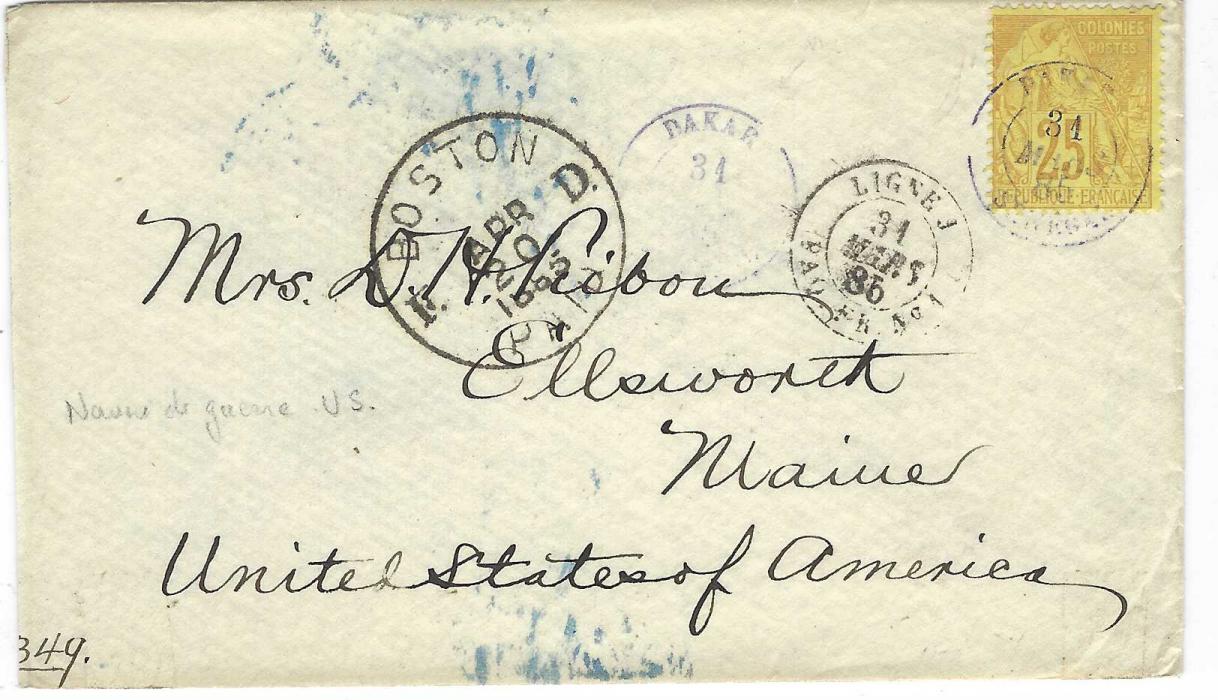 COLONIES
POSTES
25
REPUBLIQUE FRANCAISE
31
DAKAR
31
LIGNE J
31
MARS
85
PAQ. FR. No 1
BOSTON
APR
20
1885
PAID
F. D.
Mrs. D. H.
Ellsworth
Maine
United States of America
de guerre US.
349.